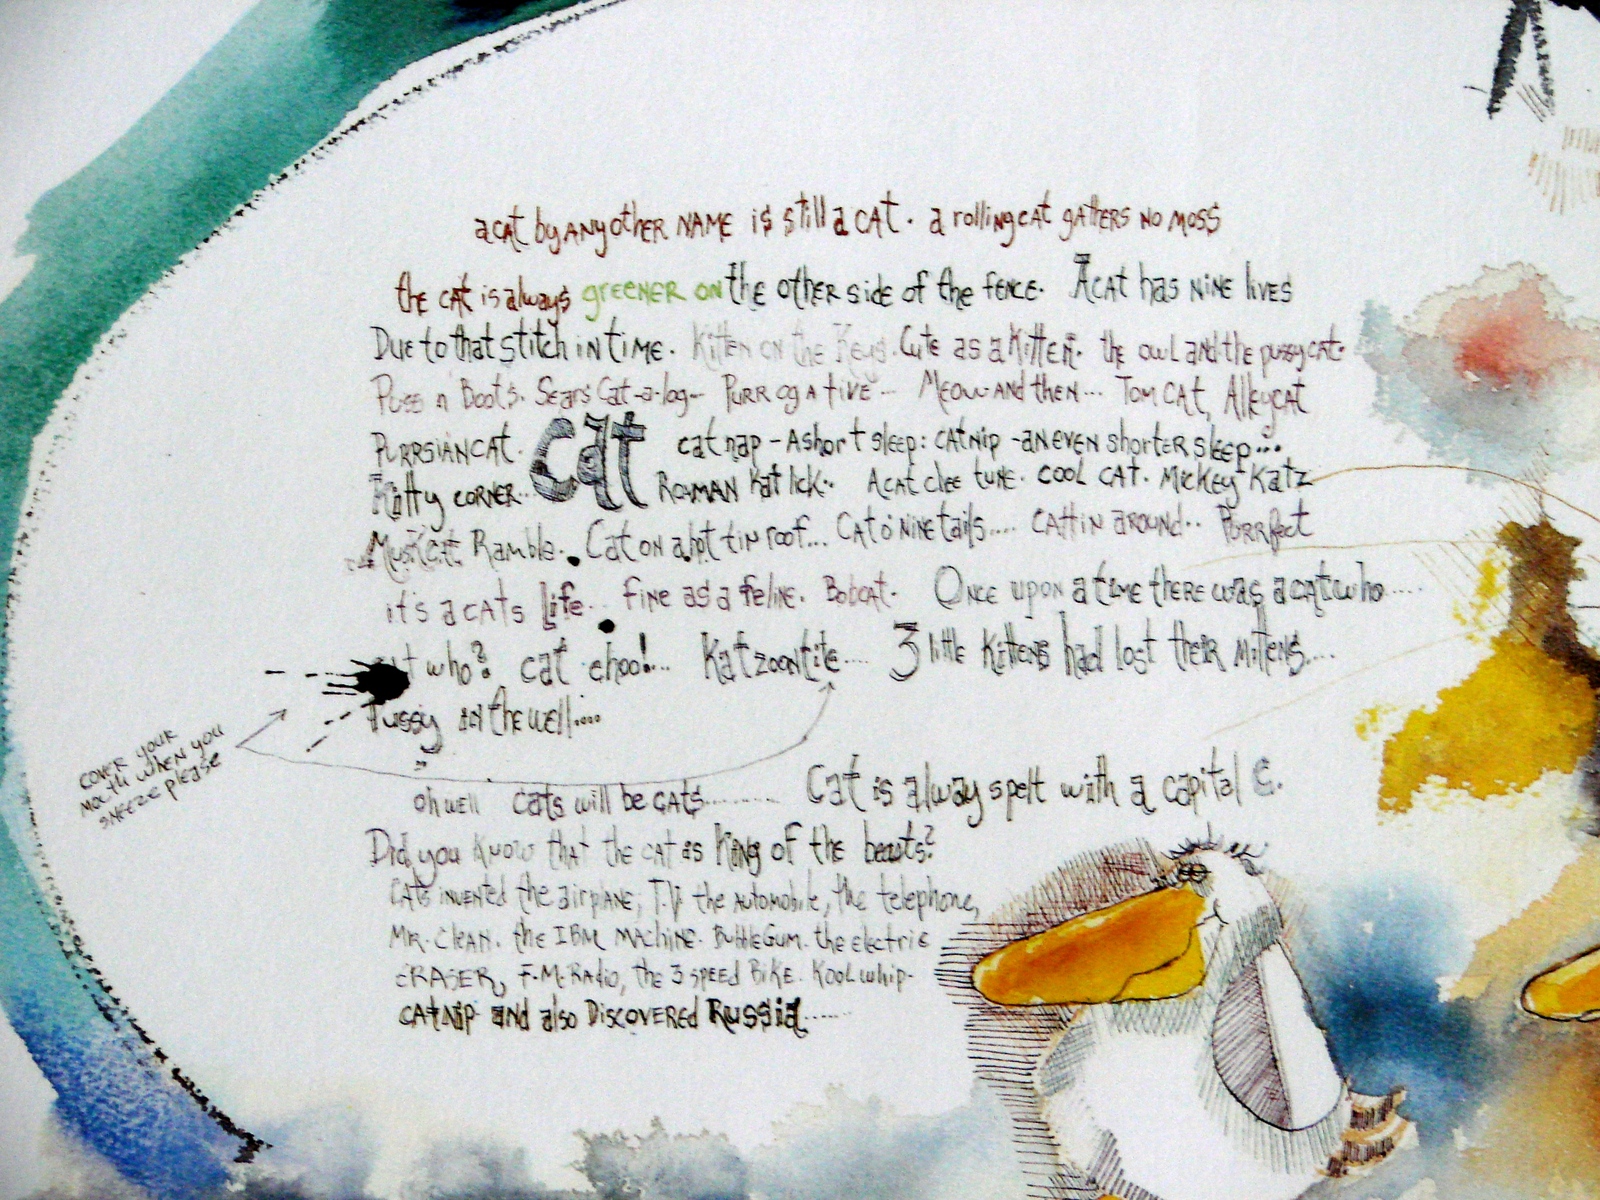 a cat by any other NAME is still a CAT. a rolling cat gathers NO MOSS
the cat is always greener on the other side of the fence. A cat has NiNE lives
Due to that stitch in time. Kitten on the Keys. Cute as a Kitten. the owl and the pussy cat.
Puss n Boots. Sears Cat-a-log-- PURRogative... Meow and then... TOM CAT, Alleycat
PURRSIAN CAT. cat nap - A short sleep: CAtNip - an EVEN shorter sleep...
cat
Kitty CORNER.. ROMAN Kat lick.. A cat clee tune. COOL CAT. Mickey Katz
MusKatt Ramble. Cat on a hot tin roof... Cat o' NiNe tails..... CATTiN AROUND.. Purrfect
it's a CATs Life.. FiNE as a feline. Bobcat. ONCE upon a time THERE was a cat who.....
who? cat choo!... Katzoontite.... 3 little Kittens had lost their Mittens....
Pussy in the well....
COVER your
Mouth when you
SNEEZE please
oh well cats will be CATs......... Cat is alway spelt with a capital C.
Did you Know that the cat is King of the beasts?
CATs iNVENTED the airplane; T.V. the AUTOMobile, the telephone,
MR. Clean. the IBM MACHiNE. BubbleGum. the electric
ERASER, F.M. Radio, the 3 SPEED BiKE. Kool whip.
CAtNip and also DiscOVERED Russia......